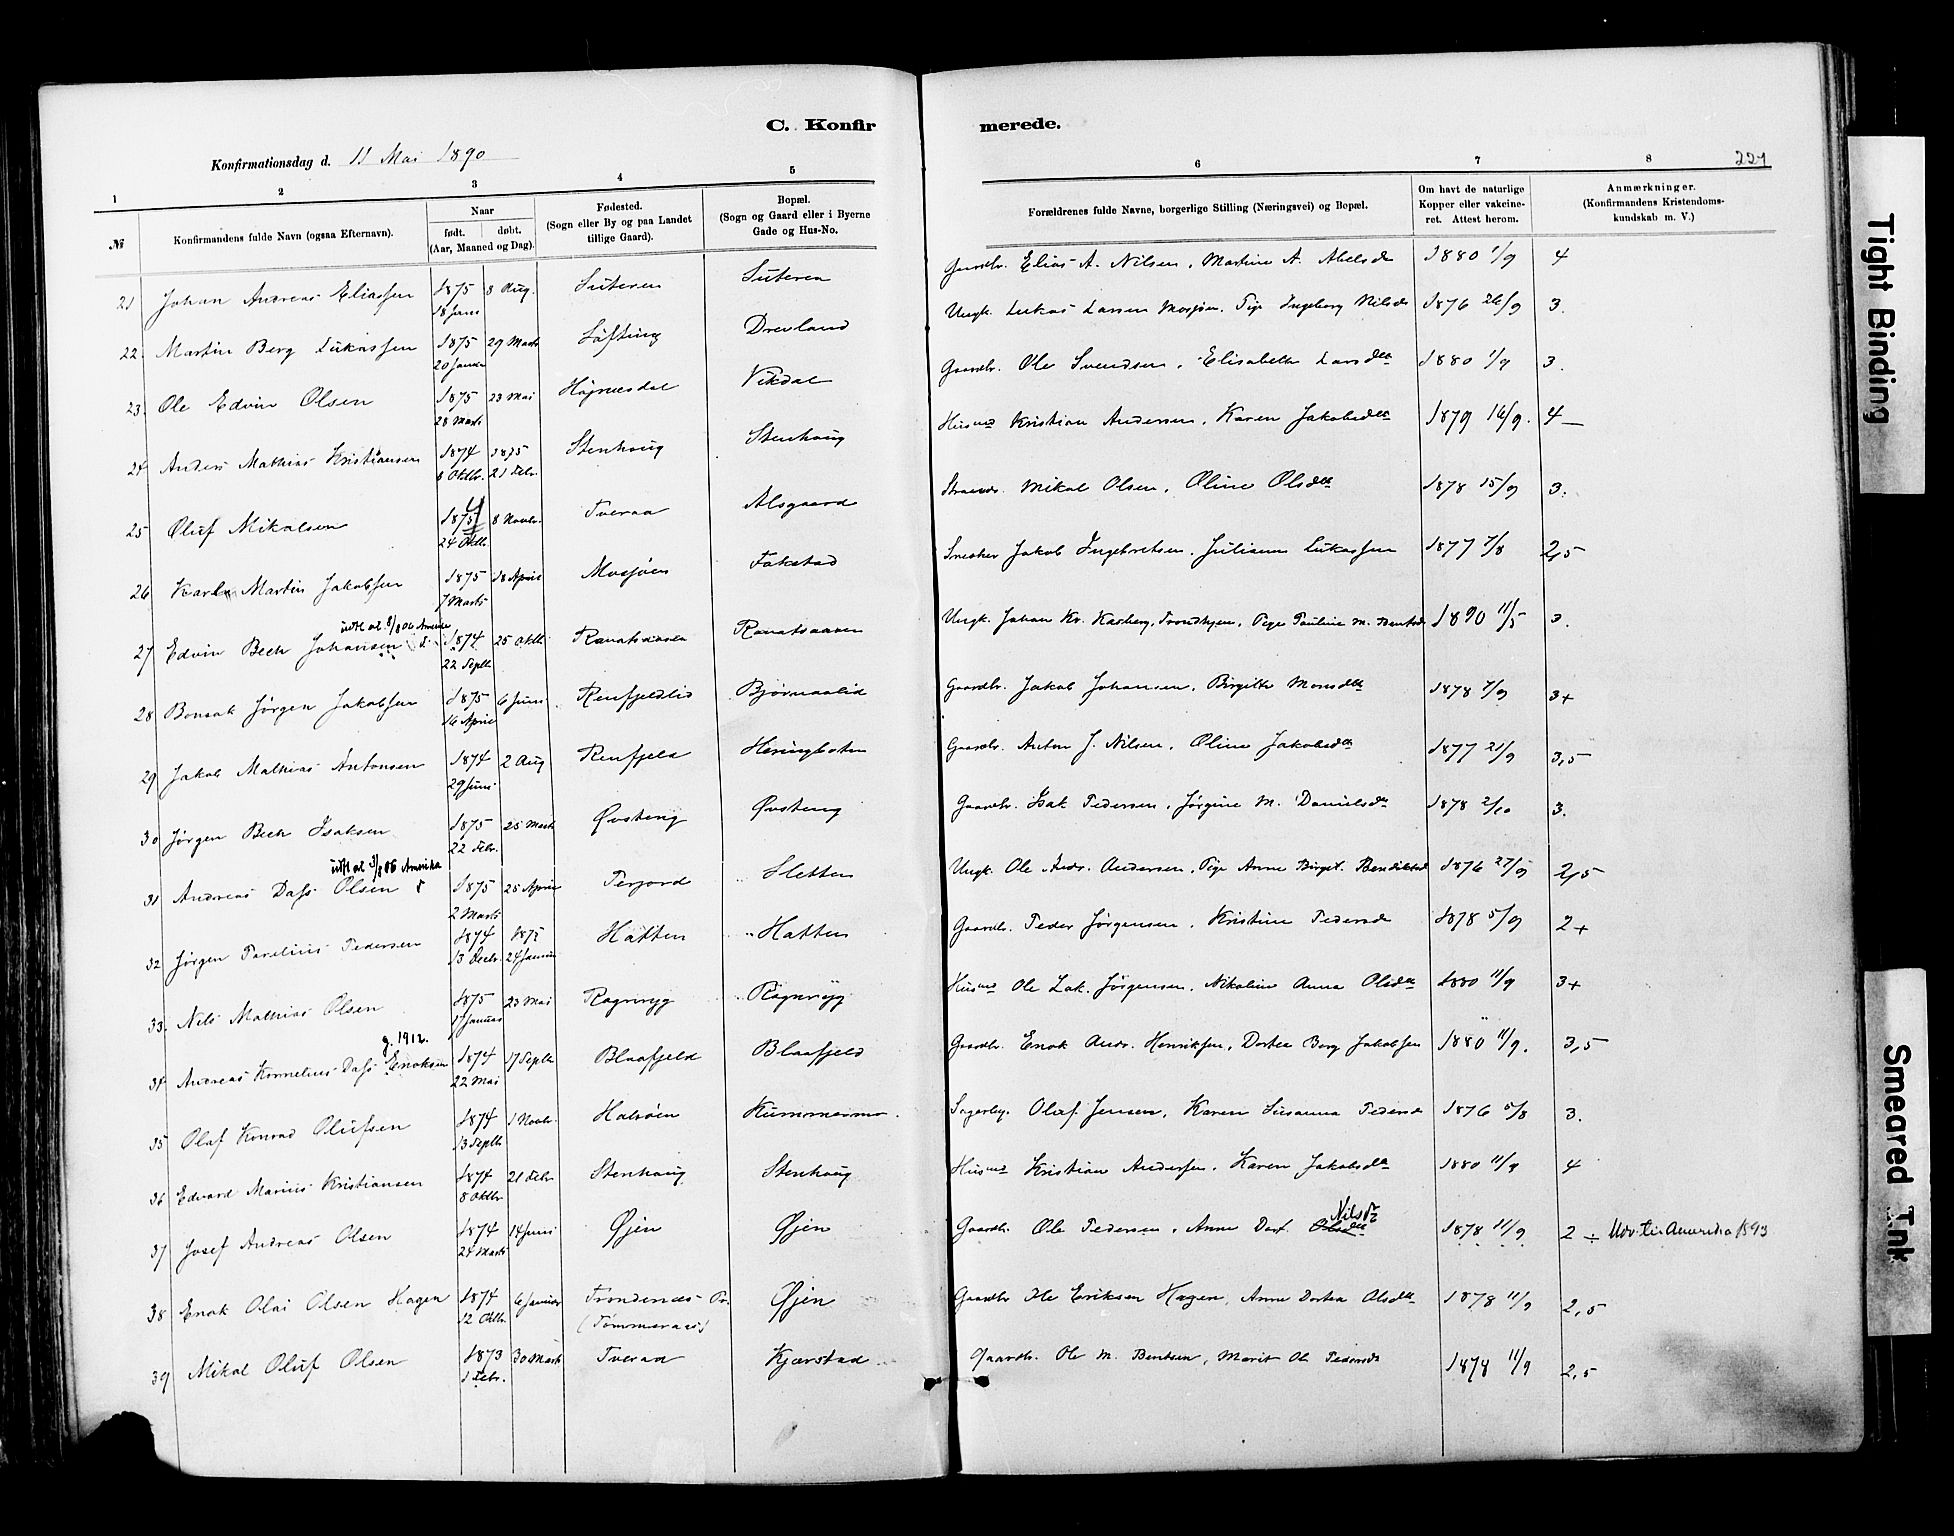 C. Konfirmerede.
Konfirmationsdag d. 11 Mai 1890
221
1 2 3 4 5 6 7 8
№ Konfirmandens fulde Navn (ogsaa Efternavn). Naar født. døbt. (Aar, Maaned og Dag). Fødested. (Sogn eller By og paa Landet tillige Gaard). Bopæl. (Sogn og Gaard eller i Byerne Gade og Hus-No. Forældrenes fulde Navne, borgerlige Stilling (Næringsvei) og Bopæl. Om havt de naturlige Kopper eller vakcineret. Attest herom. Anmærkninger. (Konfirmandens Kristendomskundskab m. V.)
21 Johan Andreas Eliassen 1875 18 Juni 8 Aug. Luteren Luteren Gaardbr. Elias A. Nilsen, Martine A. Abelsd 1880 1/9 4
22. Martin Berg Lukassen 1875 20 Januar 29 Marts Løfting Drevland Ungk. Lukas Larsen Mosjøen. Pige Ingeborg Nilsd 1876 26/9 3.
23. Ole Edvin Olsen 1875 28 Marts 23 Mai Højnesdal Vikdal Gaardbr. Ole Svendsen, Elisabeth Larsdtr 1880 1/9 3.
24 Anders Mathias Kristiansen 1874 8 Oktbr. 1875 21 Febr. Stenhoug Stenhoug Husmd Kristian Andersen, Karen Jakobsdtr 1879 16/9. 4 —
25 Oluf Mikalsen 1875 4 24 Oktb. 8 Novbr. Tveraa Alsgaard Strands. Mikal Olsen, Oline Olsdtr 1878 15/9 3.
26 Karl Martin Jakobsen 1875 7 Marts 18 April Mosjøen Fokstad Snedker Jakob Ingebretsen, Juliane Lukassen 1877 7/8 2,5
27 Edvin Bech Johansen utfl. at. 3/8 06 Amerika 1874 22 Septb 25 Oktb Ranatsaunen Ranatsaanen Ungk. Johan Kr. Karlberg, Trondhjem, Pige Pauline M. Bentsd 1890 11/5 3.
28 Bonsak Jørgen Jakobsen 1875 16 April 6 Juni Renfjeldlid Bjørnaalid Gaardbr. Jakob Johansen, Birgitte Monsdtr 1878 7/9 3+
29 Jakob Mathias Antonsen 1874 29 Juni 2 Aug Renfjeld Heringboten Gaardbr. Anton J. Nilsen, Oline Jakobsdtr 1877 21/9 3,5
30 Jørgen Bech Isaksen 1875 22 Febr. 25 Marts Øvsteng Øvsteng Gaardbr. Isak Pedersen, Jørgine M. Danielsdtr 1878 2/10 3.
31 Andreas Dass Olsen utfl. at 3/8 06 Amerika 1875 2 Marts 25 April Terjord Sletten Ungk. Ole Andr. Andersen, Pige Anne Birgit. Bendiktsd 1876 27/9 2,5
32 Jørgen Parelius Pedersen 1874 13 Decbr. 1875 24 Januar Hatten Hatten Gaardbr. Peder Jørgensen, Kristine Pedersd 1878 5/9 2+
33. Nils Mathias Olsen 1875 17 Januar 23 Mai Ragnryg Ragnryg Husmd Ole Zak. Jørgensen, Nikoline Anna Olsdtr 1880 11/9 3+
34 Andreas Kornelius Dass Enoksen g. 1912. 1874 22 Mai 17 Septb Blaafjeld Blaafjeld Gaardbr. Enok Andr. Henriksen, Dortea Berg Jakobsen 1880 11/9. 3,5
35 Olaf Konrad Olufsen 1874 13 Septb 1 Novbr. Halsøen Kummermo. Sagarb. Oluf Jensen, Karen Susanna Pedersd 1876 5/8 3.
36 Edvard Marius Kristiansen 1874 8 Oktbr 21 Febr Stenhoug Stenhoug Husmd Kristian Andersen, Karen Jakobsdtr 1880 11/9 4
37 Josef Andreas Olsen 1874 24 Marts 14 Juni Øjen Øjen Gaardbr. Ole Pedersen, Anne Dort. Olsdtr Nilsdtr 1878 11/9 2 ÷ Udv. til Amerika 1893
38 Enok Olai Olsen Hagen 1874 12 Oktbr 6 Januar Trondenes Pr. (Tømmeraas) Øjen Gaardbr Ole Eriksen Hagen, Anne Dortea Olsdtr 1878 11/9 2,5
39 Mikal Oluf Olsen 1873 1 Febr. 30 Marts Tveraa Kjærstad Gaardbr. Ole M. Bentsen, Marit Ol. Pedersd 1878 11/9 2,5
Tight Binding
Smeared Ink